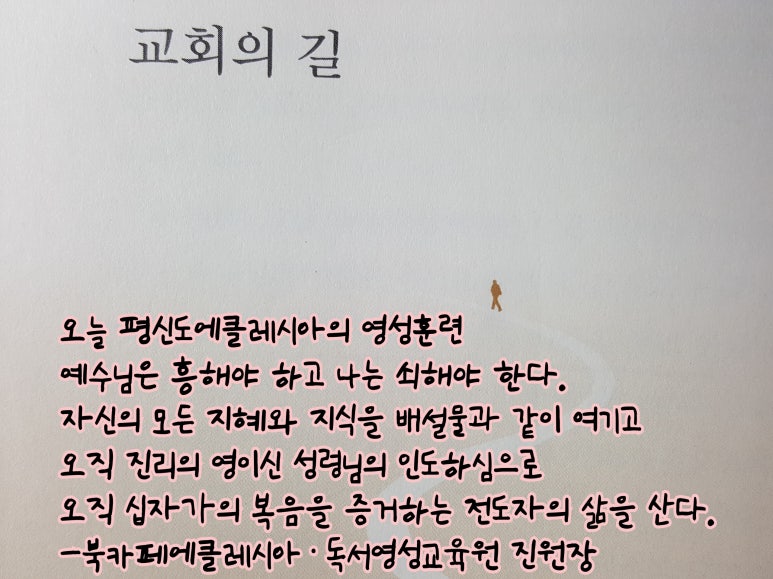 교회의 길
오늘 평신도에클레시아의 영성훈련
예수님은 흥해야 하고 나는 쇠해야 한다.
자신의 모든 지혜와 지식을 배설물과 같이 여기고
오직 진리의 영이신 성령님의 인도하심으로
오직 십자가의 복음을 증거하는 전도자의 삶을 산다.
-북카페에클레시아·독서영성교육원 진원장